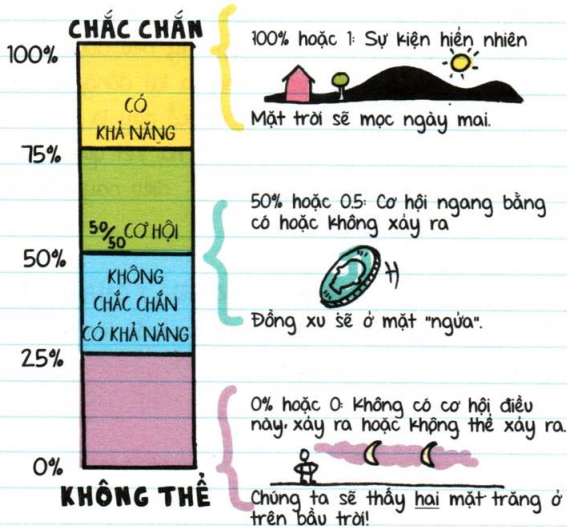 CHẮC CHẮN
100%
CÓ
KHẢ NĂNG
75%
50/50 CƠ HỘI
50%
KHÔNG
CHẮC CHẮN
CÓ KHẢ NĂNG
25%
0%
KHÔNG THỂ
100% hoặc 1: Sự kiện hiển nhiên
Mặt trời sẽ mọc ngày mai.
50% hoặc 0.5: Cơ hội ngang bằng
có hoặc không xảy ra
Đồng xu sẽ ở mặt "ngửa".
0% hoặc 0: Không có cơ hội điều
này xảy ra hoặc không thể xảy ra.
Chúng ta sẽ thấy hai mặt trăng ở
trên bầu trời!